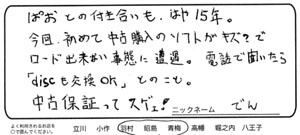 ぱおとの付き合いも、はや15年。
今回、初めて中古購入のソフトがキズ?で
ロード出来ない事態に遭遇。電話で聞いたら
「discも交換OK」とのこと。
中古保証ってスゲェ!
ニックネーム でん
よく利用されるお店を○で囲んでください。
立川 小作 羽村 昭島 青梅 高幡 堀之内 八王子